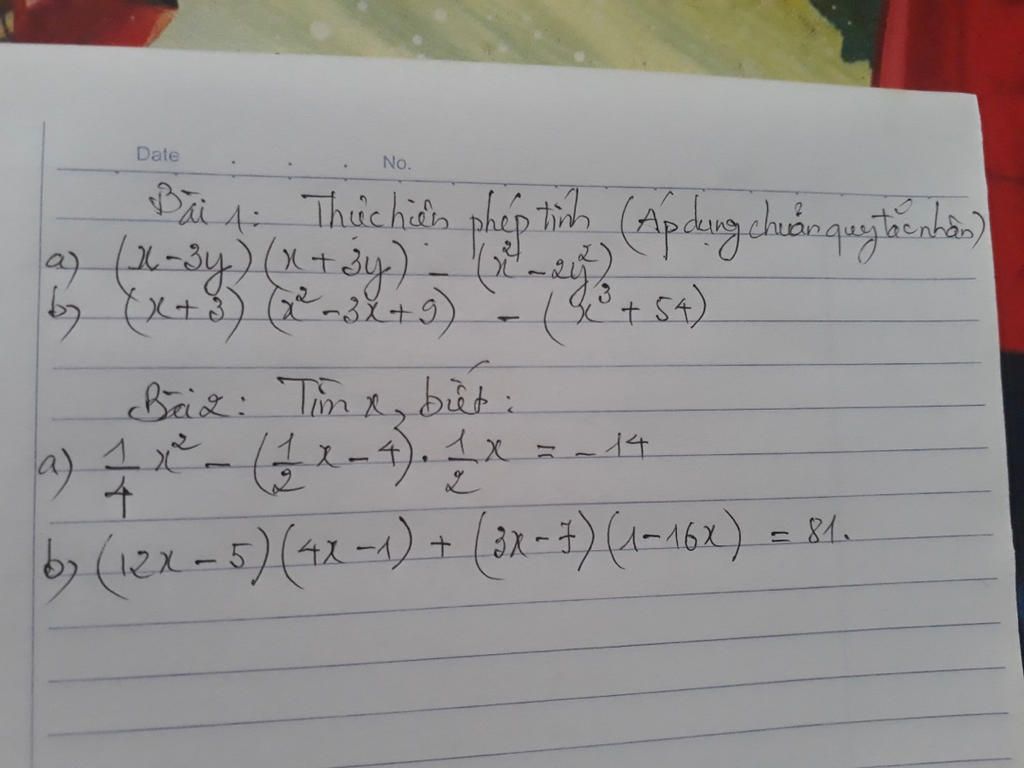 Date . . . No.
Bài 1: Thực hiện phép tính (Áp dụng chuẩn quy tắc nhân)
a) (x - 3y) (x + 3y) - (x² - 2y²)
b) (x + 3) (x² - 3x + 9) - (x³ + 54)
Bài 2: Tìm x, biết:
a) 1/4 x² - (1/2 x - 4) . 1/2 x = - 14
b) (12x - 5) (4x - 1) + (3x - 7) (1 - 16x) = 81.